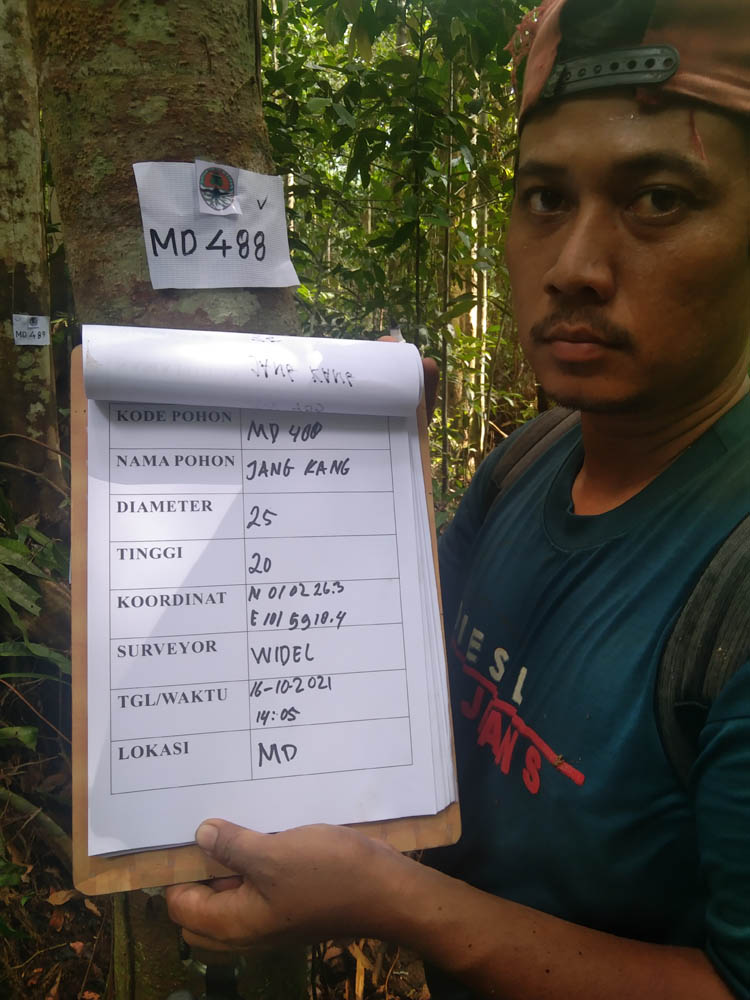 MD 488
MD 489
JANG KANG
KODE POHON MD 488
NAMA POHON JANG KANG
DIAMETER 25
TINGGI 20
KOORDINAT N 01 02 26.3
E 101 59 10.4
SURVEYOR WIDEL
TGL/WAKTU 16-10-2021
14:05
LOKASI MD
DIESL
JEANS